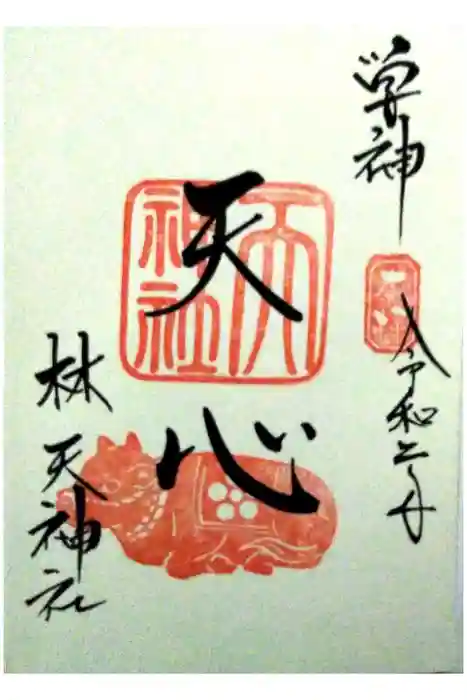 学神
令和 年
天心
天
神社
林天神社